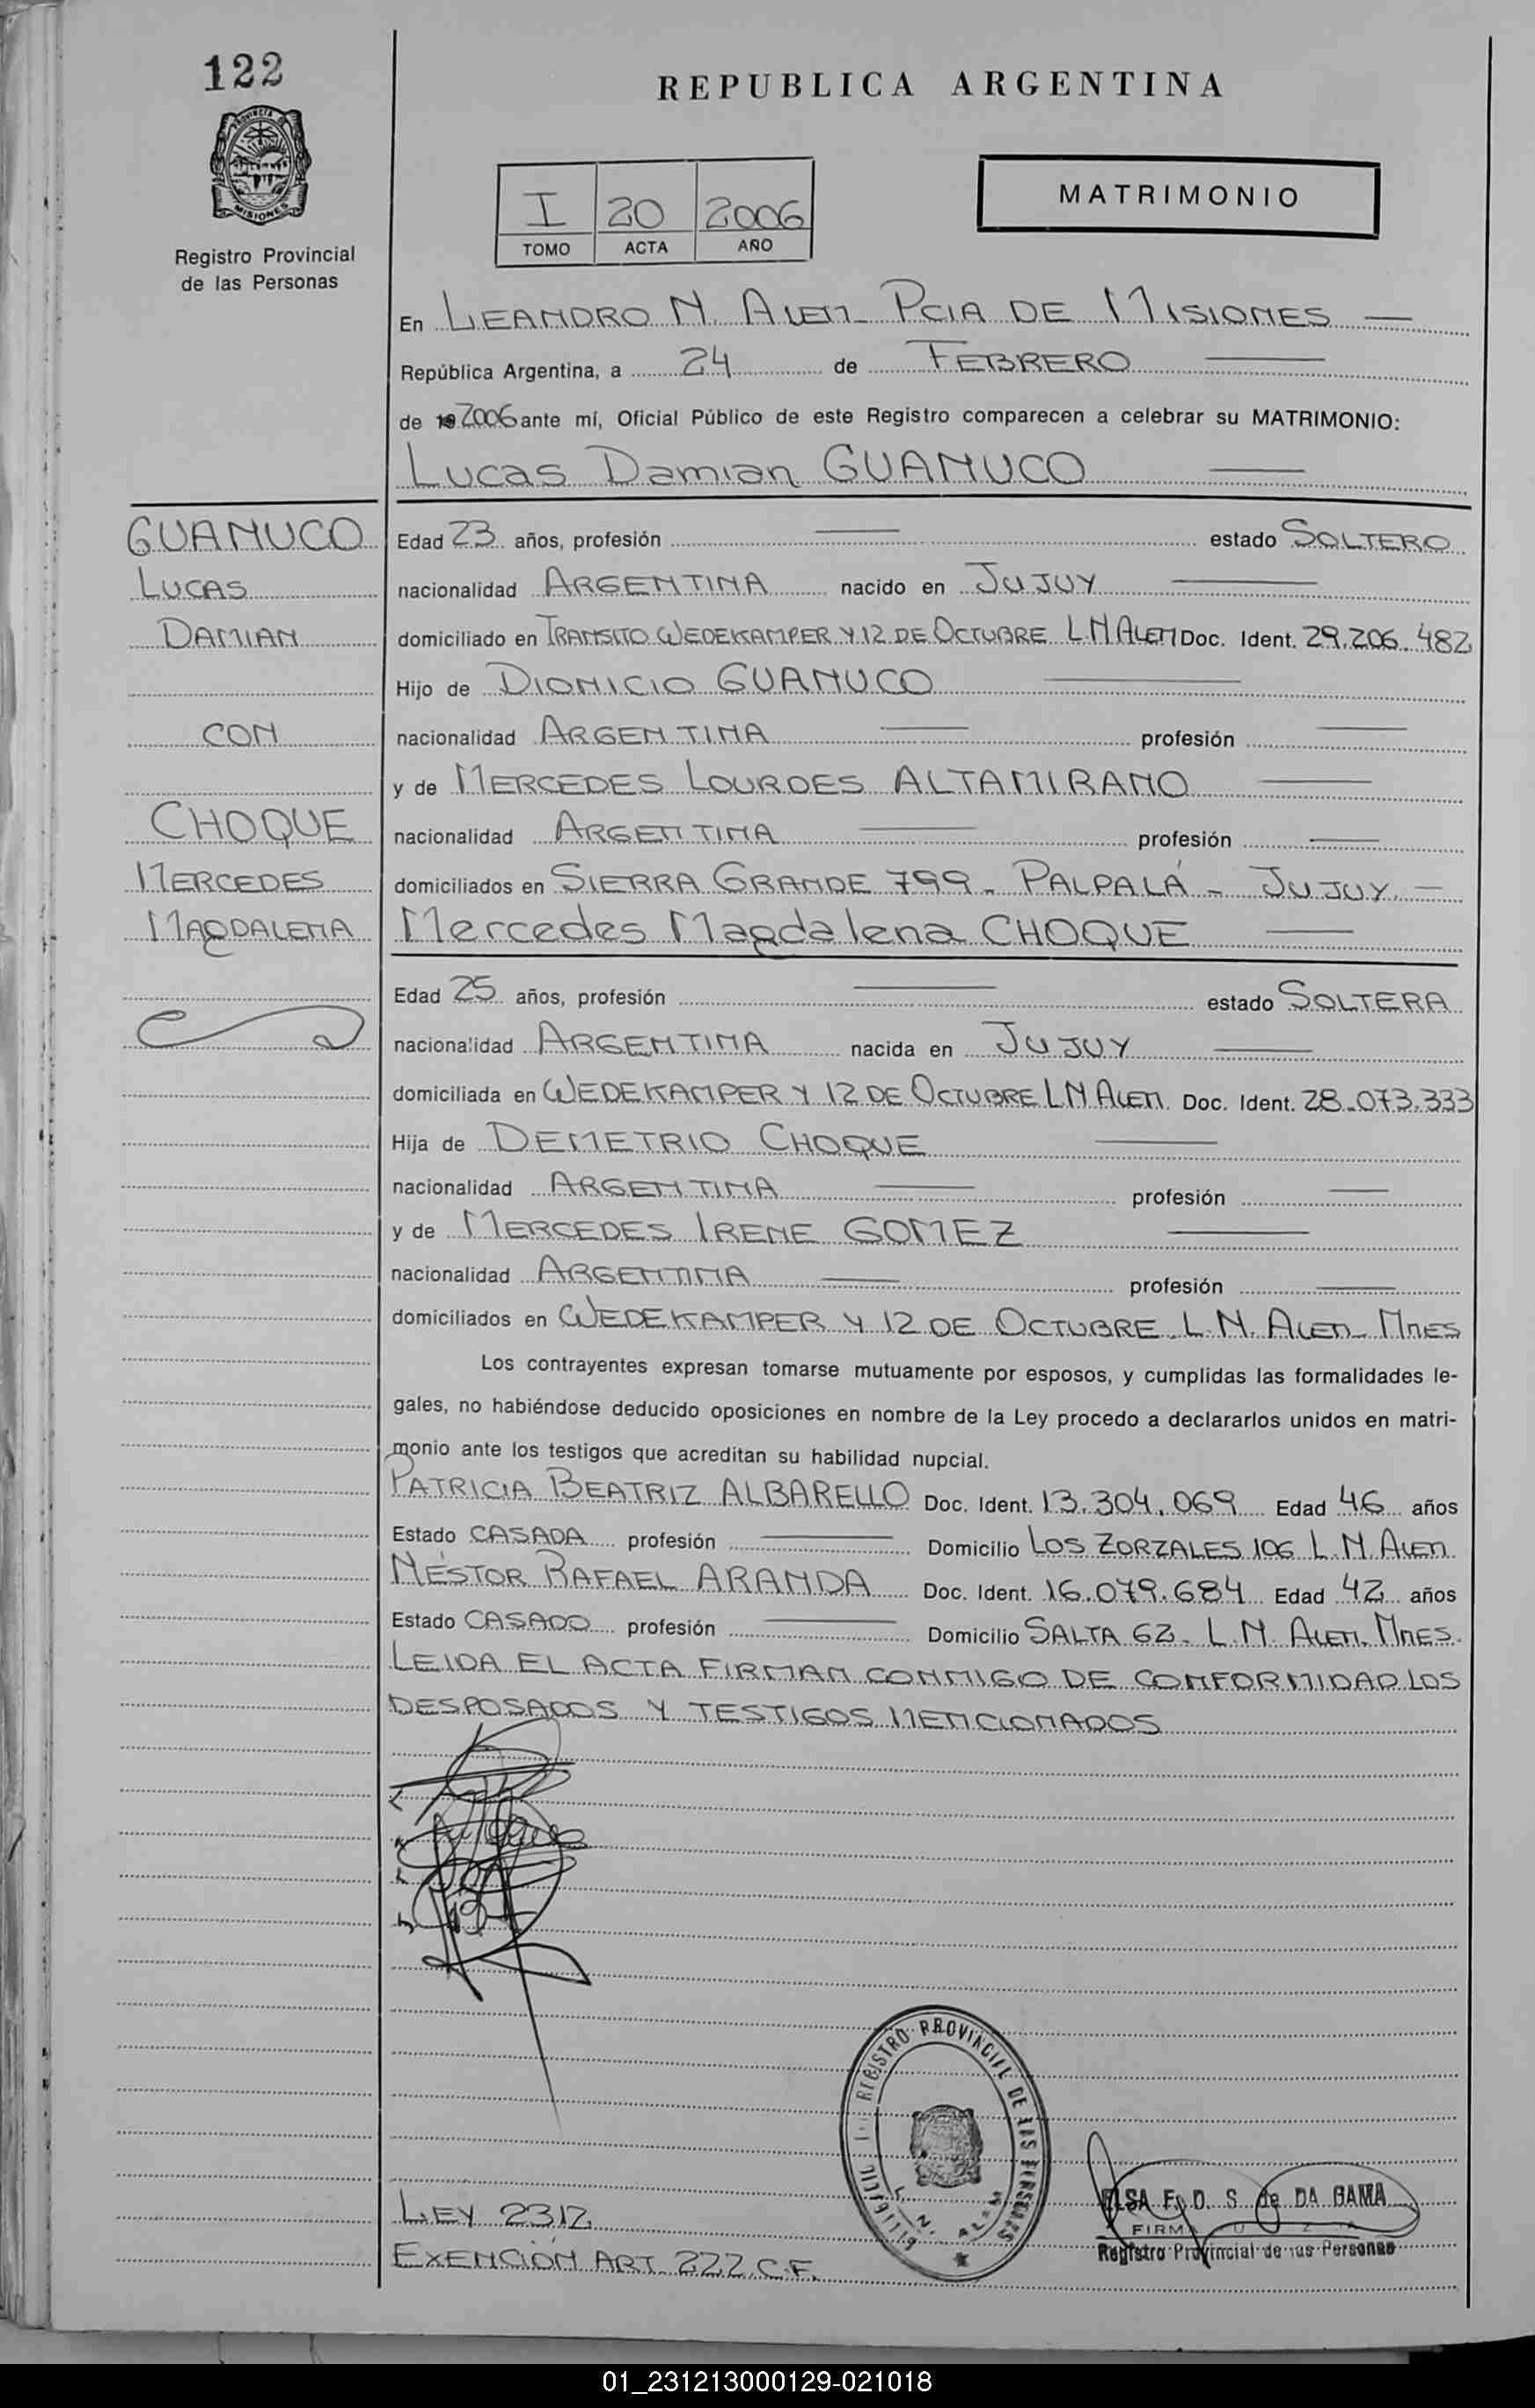 122
REPUBLICA ARGENTINA
PROVINCIA DE
MISIONES
Registro Provincial
de las Personas
I 20 2006
TOMO ACTA AÑO
MATRIMONIO
En LEANDRO N. ALEM - PCIA DE MISIONES —
República Argentina, a 24 de FEBRERO —
de 19 2006 ante mí, Oficial Público de este Registro comparecen a celebrar su MATRIMONIO:
Lucas Damian GUANUCO —
GUANUCO
LUCAS
DAMIAN
CON
CHOQUE
MERCEDES
MAGDALENA
Edad 23 años, profesión — estado SOLTERO
nacionalidad ARGENTINA nacido en JUJUY —
domiciliado en TRANSITO WEDEKAMPER Y 12 DE OCTUBRE L.N ALEM Doc. Ident. 29.206.482
Hijo de DIONICIO GUANUCO —
nacionalidad ARGENTINA — profesión —
y de MERCEDES LOURDES ALTAMIRANO —
nacionalidad ARGENTINA — profesión —
domiciliados en SIERRA GRANDE 799 - PALPALÁ - JUJUY. —
Mercedes Magdalena CHOQUE —
Edad 25 años, profesión — estado SOLTERA
nacionalidad ARGENTINA nacida en JUJUY —
domiciliada en WEDEKAMPER Y 12 DE OCTUBRE L N ALEM Doc. Ident. 28.073.333
Hija de DEMETRIO CHOQUE —
nacionalidad ARGENTINA — profesión —
y de MERCEDES IRENE GOMEZ —
nacionalidad ARGENTINA — profesión —
domiciliados en WEDEKAMPER Y 12 DE OCTUBRE. L.N. ALEM - MNES
Los contrayentes expresan tomarse mutuamente por esposos, y cumplidas las formalidades le-
gales, no habiéndose deducido oposiciones en nombre de la Ley procedo a declararlos unidos en matri-
monio ante los testigos que acreditan su habilidad nupcial.
PATRICIA BEATRIZ ALBARELLO Doc. Ident. 13.304.069 Edad 46 años
Estado CASADA profesión — Domicilio LOS ZORZALES 106 L.N ALEM
NÉSTOR RAFAEL ARANDA Doc. Ident. 16.079.684 Edad 42 años
Estado CASADO profesión — Domicilio SALTA 62 - L.N. ALEM. MNES.
LEIDA EL ACTA FIRMAN CONMIGO DE CONFORMIDAD LOS
DESPOSADOS Y TESTIGOS MENCIONADOS
REGISTRO PROVINCIAL DE LAS PERSONAS
L. N. ALEM
ELSA F. D. S. de DA GAMA
FIRMA
Registro Provincial de las Personas
LEY 2312
EXENCIÓN ART. 222 C.F.
01_231213000129-021018